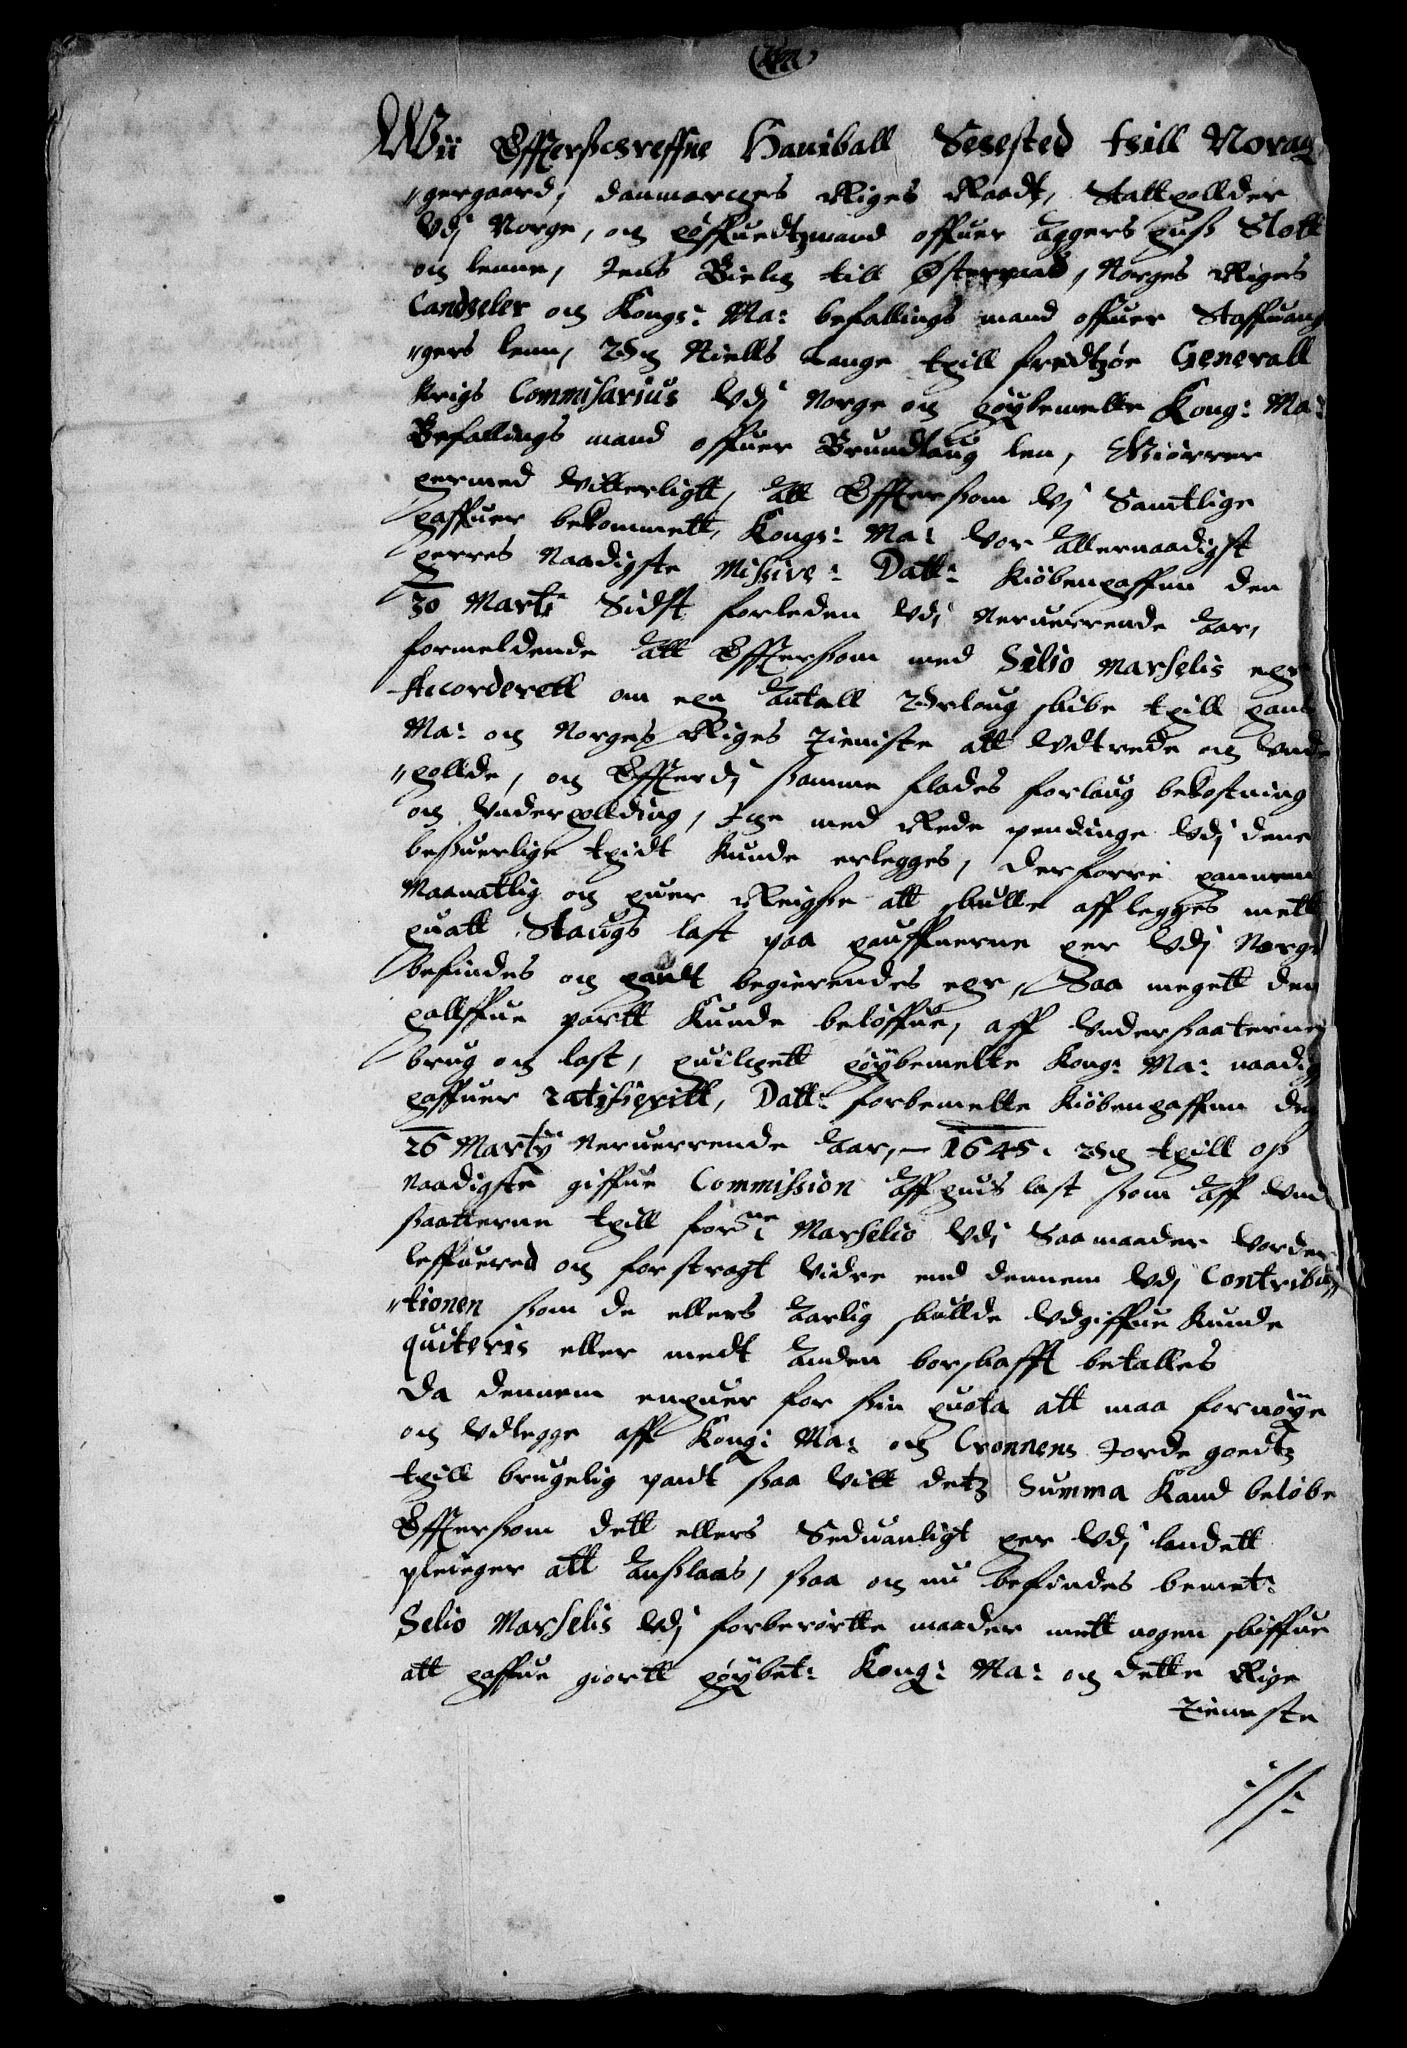 Wii Effterschreffne Haniball Sehested thill Norag
"gergaard, danmarches Riges Raadt, Stattholder
Udj Norge, och höffuedtzmand offuer Aggers huuß Slott
och lenne, Jens Bielche till Østerraad, Norges Riges
Candzeler och Kongs: Ma: befallings mand offuer Staffuang
"gers lenn, Och Niells Lange thill fredtzøe Generall
Krigs Commisarius Udj Norge och høybemelte Kong: Ma:
Befallings mand offuer Brundlaug len, Giørrer
hermed Vitterligtt, Att Effterßom Vj Samtlige
haffuer bekommett, Kongs: Ma: Vor Allernaadigst
herres Naadigste Missive: Datt: Kiøbenhaffun den
30 Marti Sidst forleden Udj Neruerrende Aar,
formeldende Att Effterßom med Silio Marselis ehr
Accorderett om ehn Antall Orloug skibe thill hans
Ma: och Norges Riges tieniste att Udtrede och Unde
"hollde, och Efferdj ßamme flades forlaug bekostning
och Underholding, Iche med Rede pendinge Udj denne
beßuerlige thidt Kunde erlegges, derforre hannem
Maanatlig och huer Reigße att skulle afflegges mett
huatt Slaugs last paa hauffnerne her Udj Norge
befindes och handt begierendes ehr, Saa megett den
hallffue partt Kunde beløffue, aff Underßaaternes
brug och last, huilchett høybemelte Kong: Ma: naadig
haffuer ratificeritt, Datt: forbemelte Kiøbenhaffun den
26 Martij Neruerrende Aar, 1645. Och thill oß
Naadigste giffue Commission Aff huis last ßom Aff Und
ßaatterne thill forne: Marselio Udj Saamaader Vorder
leffuered och forstragt Vidre end dennem Udj Contribu
"tionen ßom de ellers Aarlig skullde Udgiffue Kunde
quiteris eller medt Anden borskafft betalles
Da dennem enhuer for ßin quota att maa fornøye
och Udlegge aff Kong: Ma: och Cronnens Jorde goedtz
thill brugelig pandt ßaa Vitt detz Summa Kand beløbe
Effterßom dett ellers Seduanligt her Udj landett
pleieger att Anßlaas, ßaa och nu befindes bemet:
Selio Marselis Udj forberørtte maader mett nogen skiffue
att haffue giortt høybet: Kong: Ma: och dette Rige
tieneste